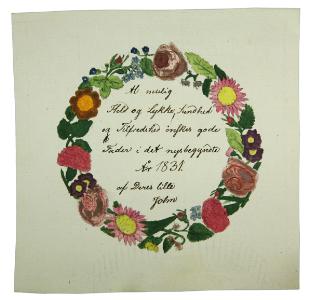 Al mulig
Held og Lykke, Sundhed
og Tilfredshed önskes gode
Fader i det nysbegyndte
År 1831.
af Deres lille
John